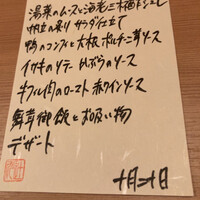 湯葉のムースと海老 三杯酢ジュレ
帆立の炙り サラダ仕立て
鴨のコンフィと大根 ポルチーニ茸ソース
イサキのソテー 焼ぶらのソース
牛フィレ肉のロースト 赤ワインソース
舞茸御飯とお吸い物
デザート
十月二十日